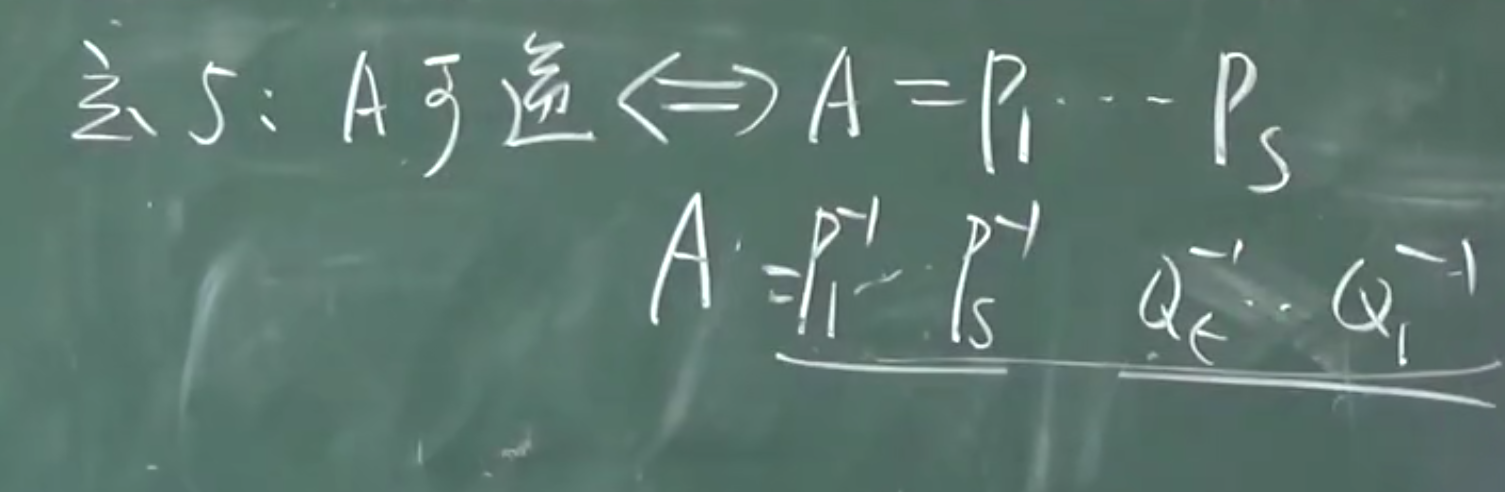 定5: A可逆 ⟺ A = P₁ ⋯ Pₛ
A = P₁⁻¹ ⋯ Pₛ⁻¹ Qₜ⁻¹ ⋯ Q₁⁻¹